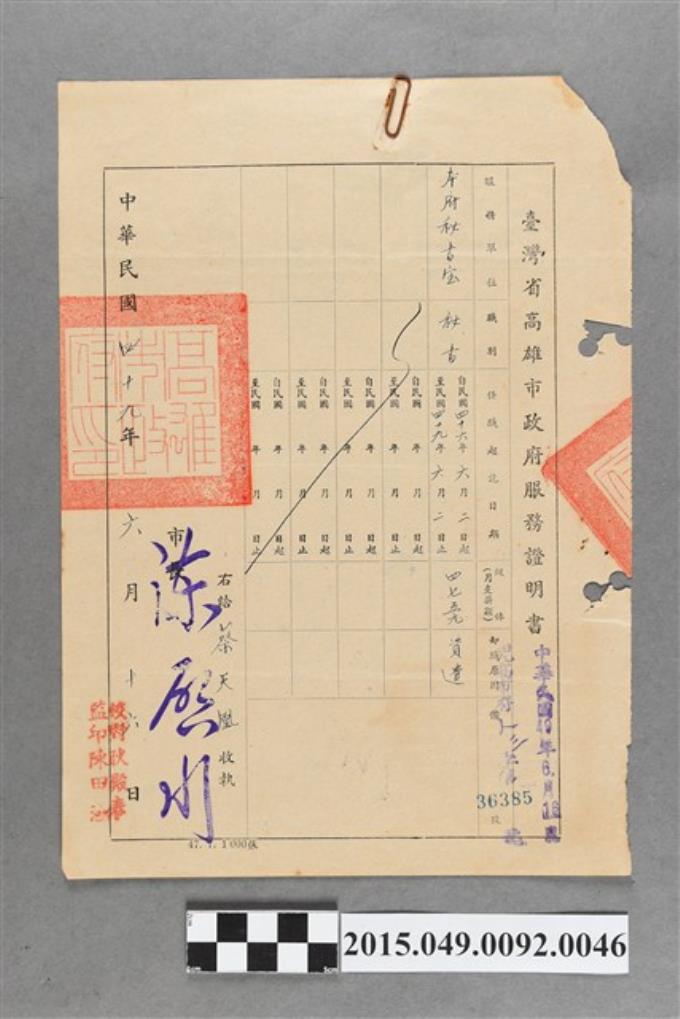 臺灣省高雄市政府服務證明書
中華民國49年6月16日
36385
服務單位
職別
任職起訖日期
級俸
(月支薪額)
卸職原因
備
攷
本府秘書室
秘書
自民國四十六年六月二日起
至民國四十九年六月二日止
四七五元
資遣
自民國 年 月 日起
至民國 年 月 日止
自民國 年 月 日起
至民國 年 月 日止
自民國 年 月 日起
至民國 年 月 日止
右給蔡天 收執
市長
陳啓川
中華民國四十九年六月十六日
高雄市政府印
校對
監印陳田
47. 7. 1 000張
0cm
5cm
2015.049.0092.0046